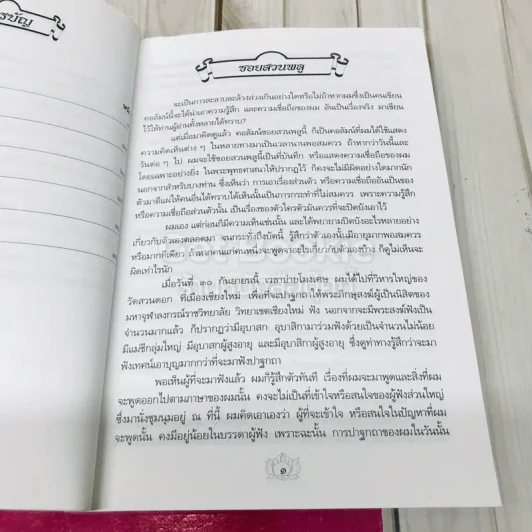 รบัญ
ซอยสวนพลู
จะเป็นการสะลาบละล้วงล่วงเกินอย่างใดหรือไม่ถ้าหากผมซึ่งเป็นคนเขียน
คอลัมน์นี้จะได้นำเอาความรู้สึก และความเชื่อถือของผม อันเป็นเรื่องจริง มาเขียน
ไว้ให้ท่านผู้อ่านทั้งหลายได้ทราบ?
แต่เมื่อมาคิดดูแล้ว คอลัมน์ซอยสวนพลูนี้ ก็เป็นคอลัมน์ที่ผมได้ใช้แสดง
ความคิดเห็นต่าง ๆ ในหลายทางมาเป็นเวลานานพอสมควร ถ้าหากว่าวันนี้และ
วันต่อ ๆ ไป ผมจะใช้ซอยสวนพลูนี้เป็นที่บันทึก หรือแสดงความเชื่อถือของผม
โดยเฉพาะอย่างยิ่ง ในพระพุทธศาสนาให้ปรากฏไว้ ก็คงจะไม่มีผิดอย่างใดมากนัก
นอกจากสำหรับบางท่าน ซึ่งเห็นว่า การเอาเรื่องส่วนตัว หรือความเชื่อถืออันเป็นของ
ตัวมาตีแผ่ให้คนอื่นได้ทราบได้เห็นนั้นเป็นการกระทำที่ไม่สมควร เพราะความรู้สึก
หรือความเชื่อถือส่วนตัวนั้น เป็นเรื่องของตัวใครตัวมันควรที่จะปิดบังเอาไว้
ผมเอง แต่ก่อนก็มีความเห็นเช่นนั้น และได้พยายามปิดบังอะไรหลายอย่าง
เกี่ยวกับตัวเองตลอดมา จนกระทั่งถึงบัดนี้ รู้สึกว่าตัวเองนั้นมีอายุมากพอสมควร
หรือมากที่เดียว ถ้าหากคนแก่คนหนึ่งจะพูดจาอะไรเกี่ยวกับตัวเองบ้าง ก็ดูไม่เห็นจะ
ผิดเท่าไรนัก
เมื่อวันที่ ๑๐ กันยายนนี้ เวลาบ่ายโมงเศษ ผมได้ไปที่วิหารใหญ่ของ
วัดสวนดอก ที่เมืองเชียงใหม่ เพื่อที่จะปาฐกถาให้พระภิกษุสงฆ์ผู้เป็นนิสิตของ
มหาจุฬาลงกรณ์ราชวิทยาลัย วิทยาเขตเชียงใหม่ ฟัง นอกจากจะมีพระสงฆ์ฟังเป็น
จำนวนมากแล้ว ก็ปรากฏว่ามีอุบาสก อุบาสิกามาร่วมฟังด้วยเป็นจำนวนไม่น้อย
มีแม่ชีกลุ่มใหญ่ มีอุบาสกผู้สูงอายุ และมีอุบาสิกาผู้สูงอายุ ซึ่งดูท่าทางรู้สึกว่าจะมา
ฟังเทศน์เอาบุญมากกว่าที่จะมาฟังปาฐกถา
พอเห็นผู้ที่จะมาฟังแล้ว ผมก็รู้สึกตัวทันที เรื่องที่ผมจะมาพูดและสิ่งที่ผม
จะพูดออกไปตามภาษาของผมนั้น คงจะไม่เป็นที่เข้าใจหรือสนใจของผู้ฟังส่วนใหญ่
ซึ่งมานั่งชุมนุมอยู่ ณ ที่นี้ ผมคิดเอาเองว่า ผู้ที่จะเข้าใจ หรือสนใจในปัญหาที่ผม
จะพูดนั้น คงมีอยู่น้อยในบรรดาผู้ฟัง เพราะฉะนั้น การปาฐกถาของผมในวันนั้น
๑